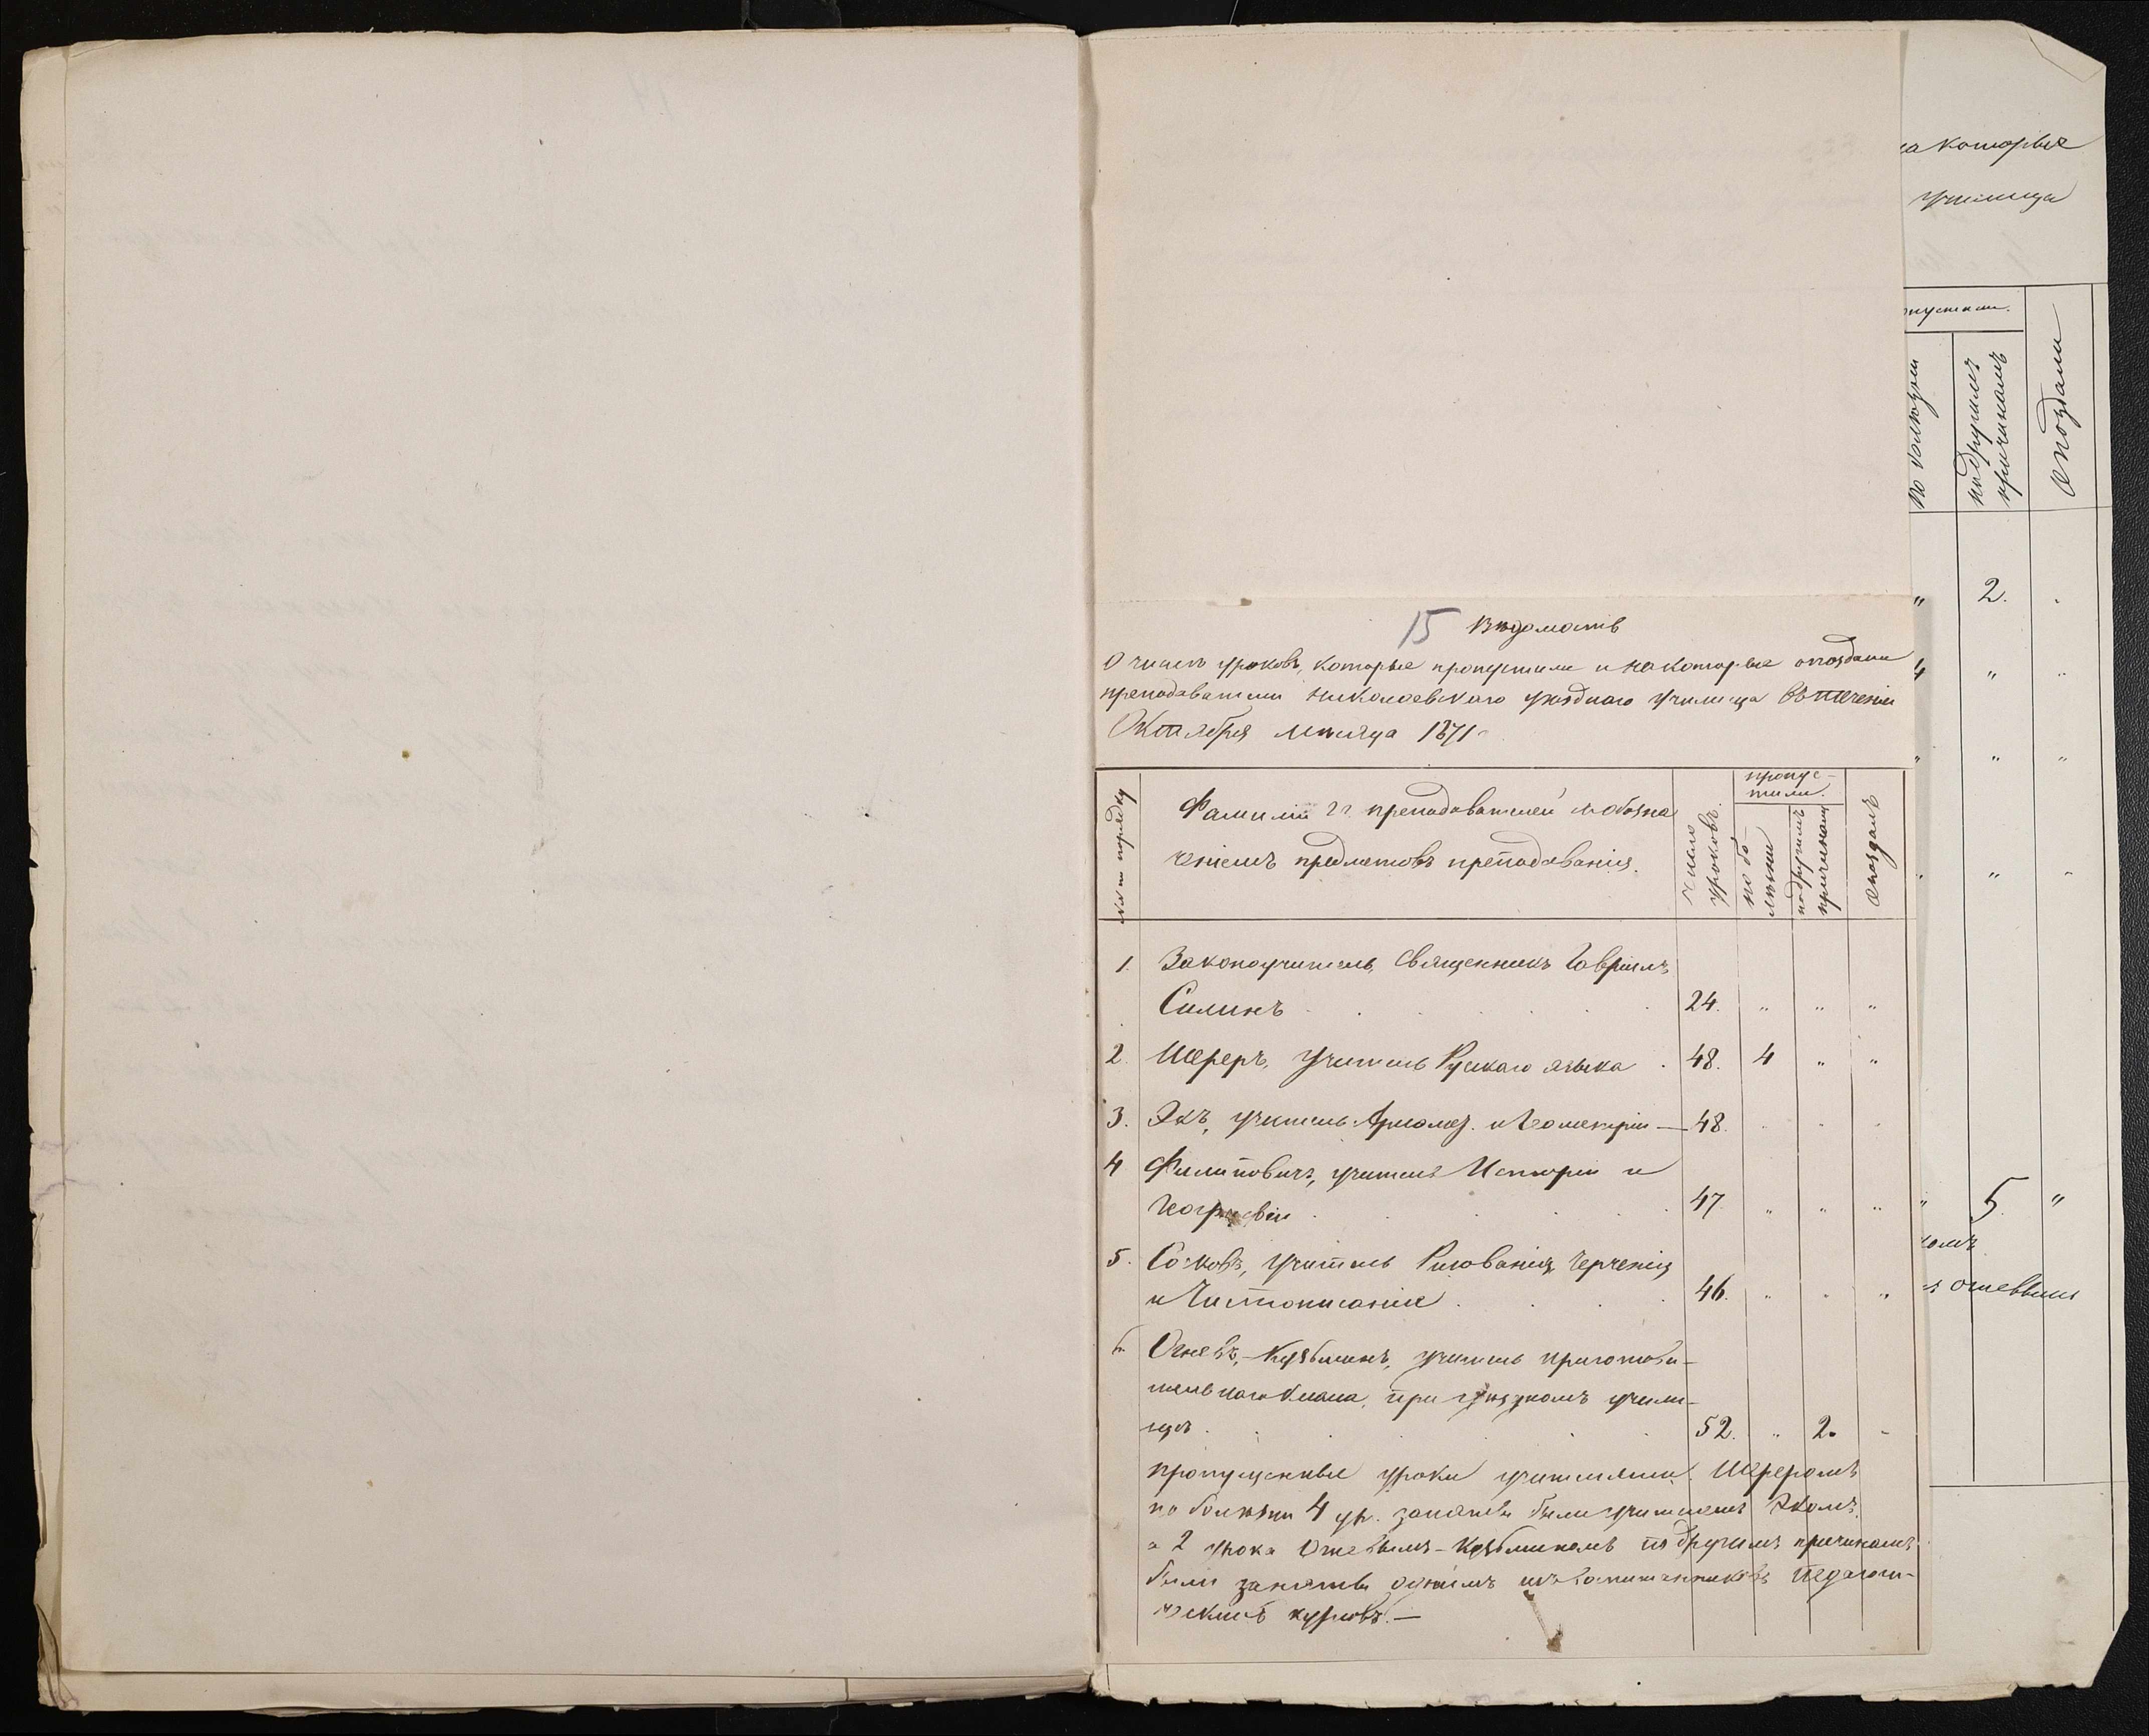 15 Вѣдомость
О числѣ уроковъ, которые пропустили и на которые опоздали
преподаватели Николаевскаго уѣзднаго училища въ теченіи
Октября мѣсяца 1871
№№ по порядку
Фамиліи гг. преподавателей и обозна
ченіемъ предметовъ преподаванія.
Число уроковъ.
пропус-
тили.
по бо-
лѣзни
по другимъ
причинамъ
опоздалъ
1. Законоучитель, священникъ Гавріилъ
Силинъ 24. " " "
2. Шереръ, учитель Рускаго языка 48. 4 " "
3. Экъ, учитель Арифмет. и Геометріи — 48.
4 Филиповичъ, учитель Исторіи и
Географіи 47 " " "
5. учитель Рисованія, Черченія
и Чистописанія 46. " " "
6. Огневъ-Кузьминъ, учитель приготови-
тельнаго класса, при уѣздномъ учили-
щѣ 52. " 2.
пропущенные уроки учителями Шереромъ
по болѣзни 4 ур. заняты были учителемъ Экомъ,
а 2 урока Огневымъ-Кузьминымъ по другимъ причинамъ
были заняты однимъ изъ воспитанниковъ Педагоги-
ческихъ курсовъ. —
на которые
училища
пустили.
по болѣзни
по другимъ
причинамъ
опоздали
" 2.
4 " "
" " "
" "
" 5. "
комъ
Огневымъ